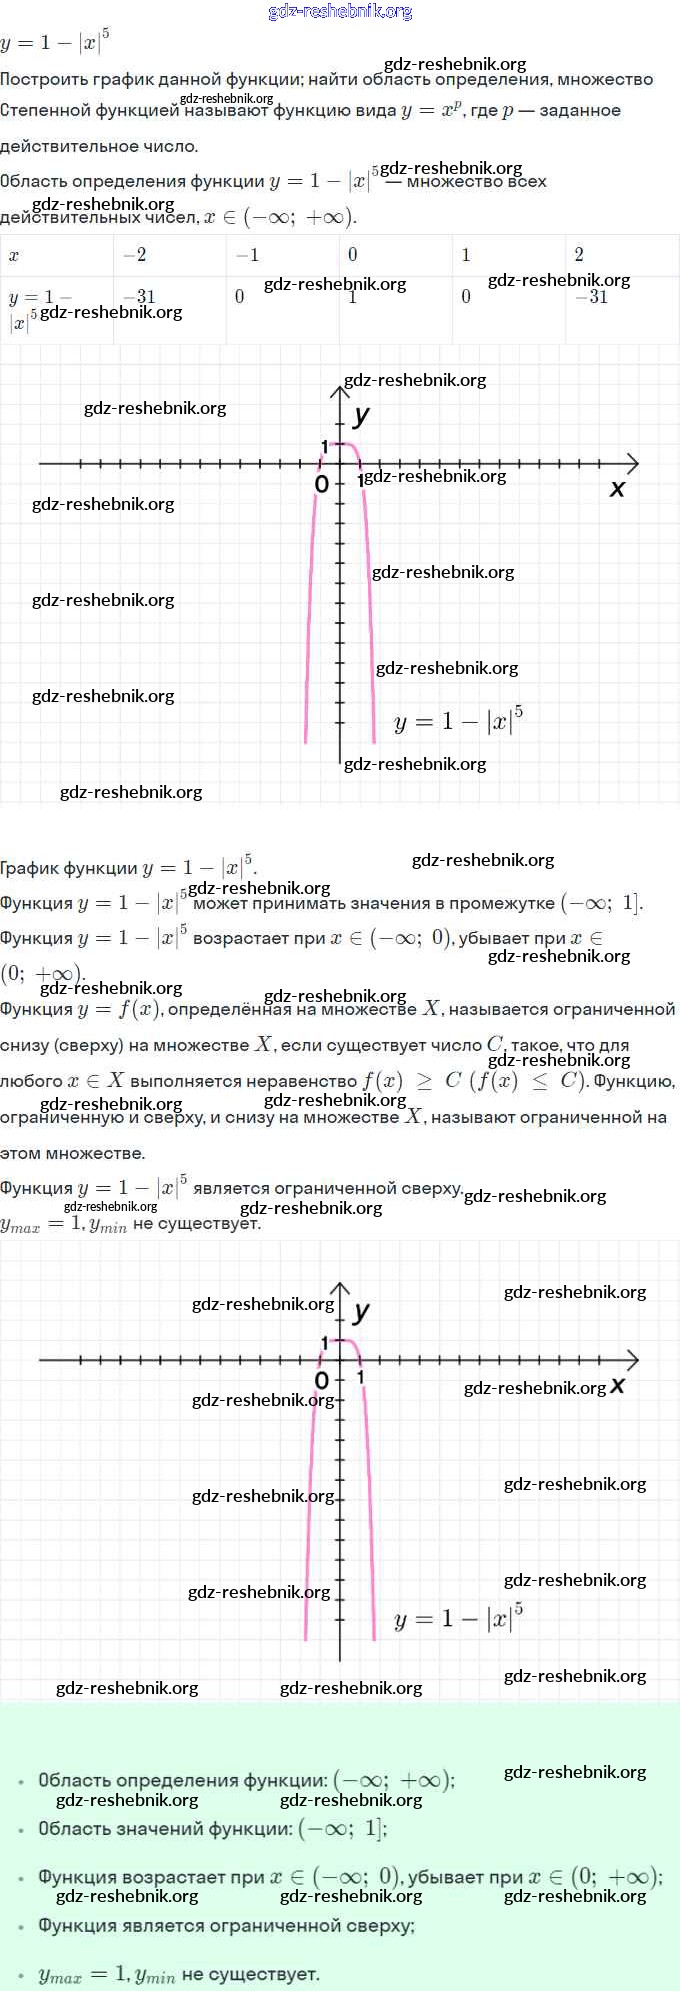 gdz-reshebnik.org
y = 1 − |x|^5
gdz-reshebnik.org
Построить график данной функции; найти область определения, множество
gdz-reshebnik.org
Степенной функцией называют функцию вида y = x^p, где p — заданное
действительное число.
gdz-reshebnik.org
Область определения функции y = 1 − |x|^5 — множество всех
gdz-reshebnik.org
действительных чисел, x ∈ (−∞; +∞).
x −2 −1 0 1 2
gdz-reshebnik.org gdz-reshebnik.org
y = 1 − −31 0 1 0 −31
|x|^5 gdz-reshebnik.org
gdz-reshebnik.org
gdz-reshebnik.org y
1
0 1 gdz-reshebnik.org x
gdz-reshebnik.org
gdz-reshebnik.org
gdz-reshebnik.org
gdz-reshebnik.org
gdz-reshebnik.org
y = 1 − |x|^5
gdz-reshebnik.org
gdz-reshebnik.org
gdz-reshebnik.org
График функции y = 1 − |x|^5.
gdz-reshebnik.org
Функция y = 1 − |x|^5 может принимать значения в промежутке (−∞; 1].
Функция y = 1 − |x|^5 возрастает при x ∈ (−∞; 0), убывает при x ∈
gdz-reshebnik.org
(0; +∞).
gdz-reshebnik.org gdz-reshebnik.org
Функция y = f(x), определённая на множестве X, называется ограниченной
снизу (сверху) на множестве X, если существует число C, такое, что для
gdz-reshebnik.org
любого x ∈ X выполняется неравенство f(x) ≥ C (f(x) ≤ C). Функцию,
gdz-reshebnik.org gdz-reshebnik.org
ограниченную и сверху, и снизу на множестве X, называют ограниченной на
этом множестве.
Функция y = 1 − |x|^5 является ограниченной сверху.
gdz-reshebnik.org gdz-reshebnik.org gdz-reshebnik.org
y_max = 1, y_min не существует.
gdz-reshebnik.org
gdz-reshebnik.org y
1
0 1 gdz-reshebnik.org x
gdz-reshebnik.org
gdz-reshebnik.org
gdz-reshebnik.org
gdz-reshebnik.org
gdz-reshebnik.org
y = 1 − |x|^5
gdz-reshebnik.org
gdz-reshebnik.org gdz-reshebnik.org
gdz-reshebnik.org
• Область определения функции: (−∞; +∞);
gdz-reshebnik.org gdz-reshebnik.org
• Область значений функции: (−∞; 1];
• Функция возрастает при x ∈ (−∞; 0), убывает при x ∈ (0; +∞);
gdz-reshebnik.org gdz-reshebnik.org gdz-reshebnik.org
• Функция является ограниченной сверху;
• y_max = 1, y_min не существует.